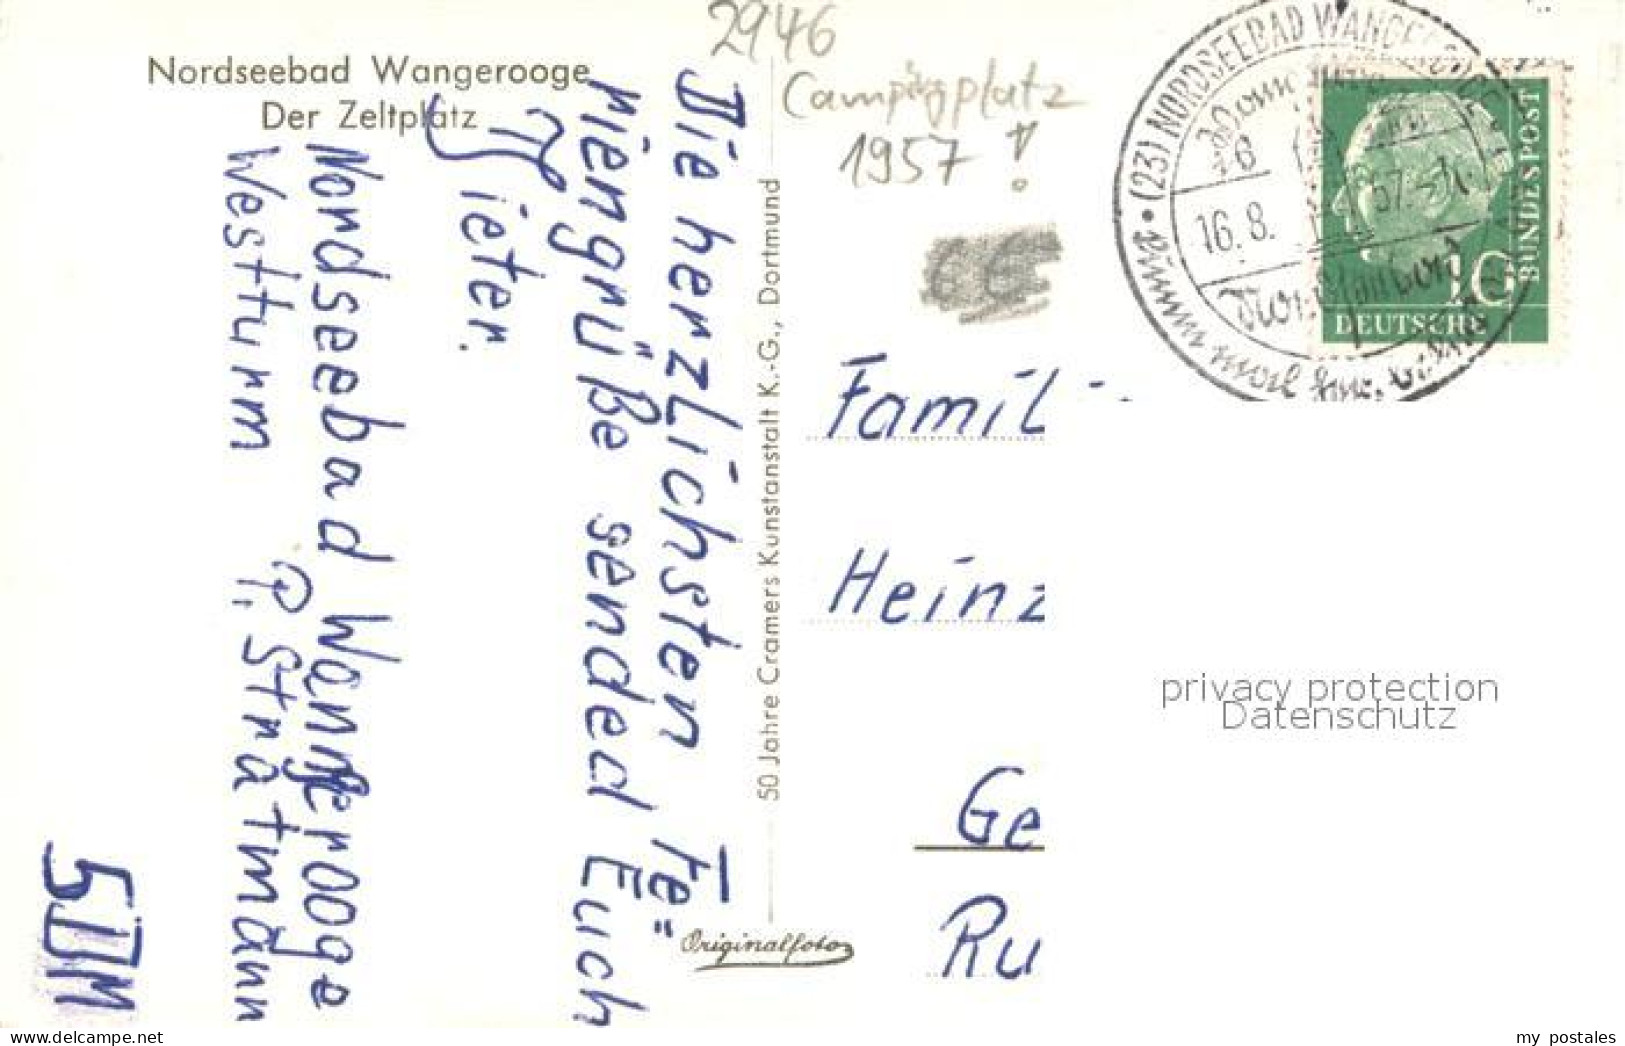 Nordseebad Wangerooge
Der Zeltplatz
Die herzlichsten Fe=
riengrüße sended Euch
Dieter.
Nordseebad Wangerooge
Westturm P. Stratmann
5 DM
50 Jahre Cramers Kunstanstalt K.-G., Dortmund
Originalfoto
2946
Campingplatz
1957 !
6 €
(23) NORDSEEBAD WANGEROOGE
16.8.57.-
10
DEUTSCHE
BUNDESPOST
Famil
Heinz
Ge
Ru
privacy protection
Datenschutz
my postales
www.delcampe.net